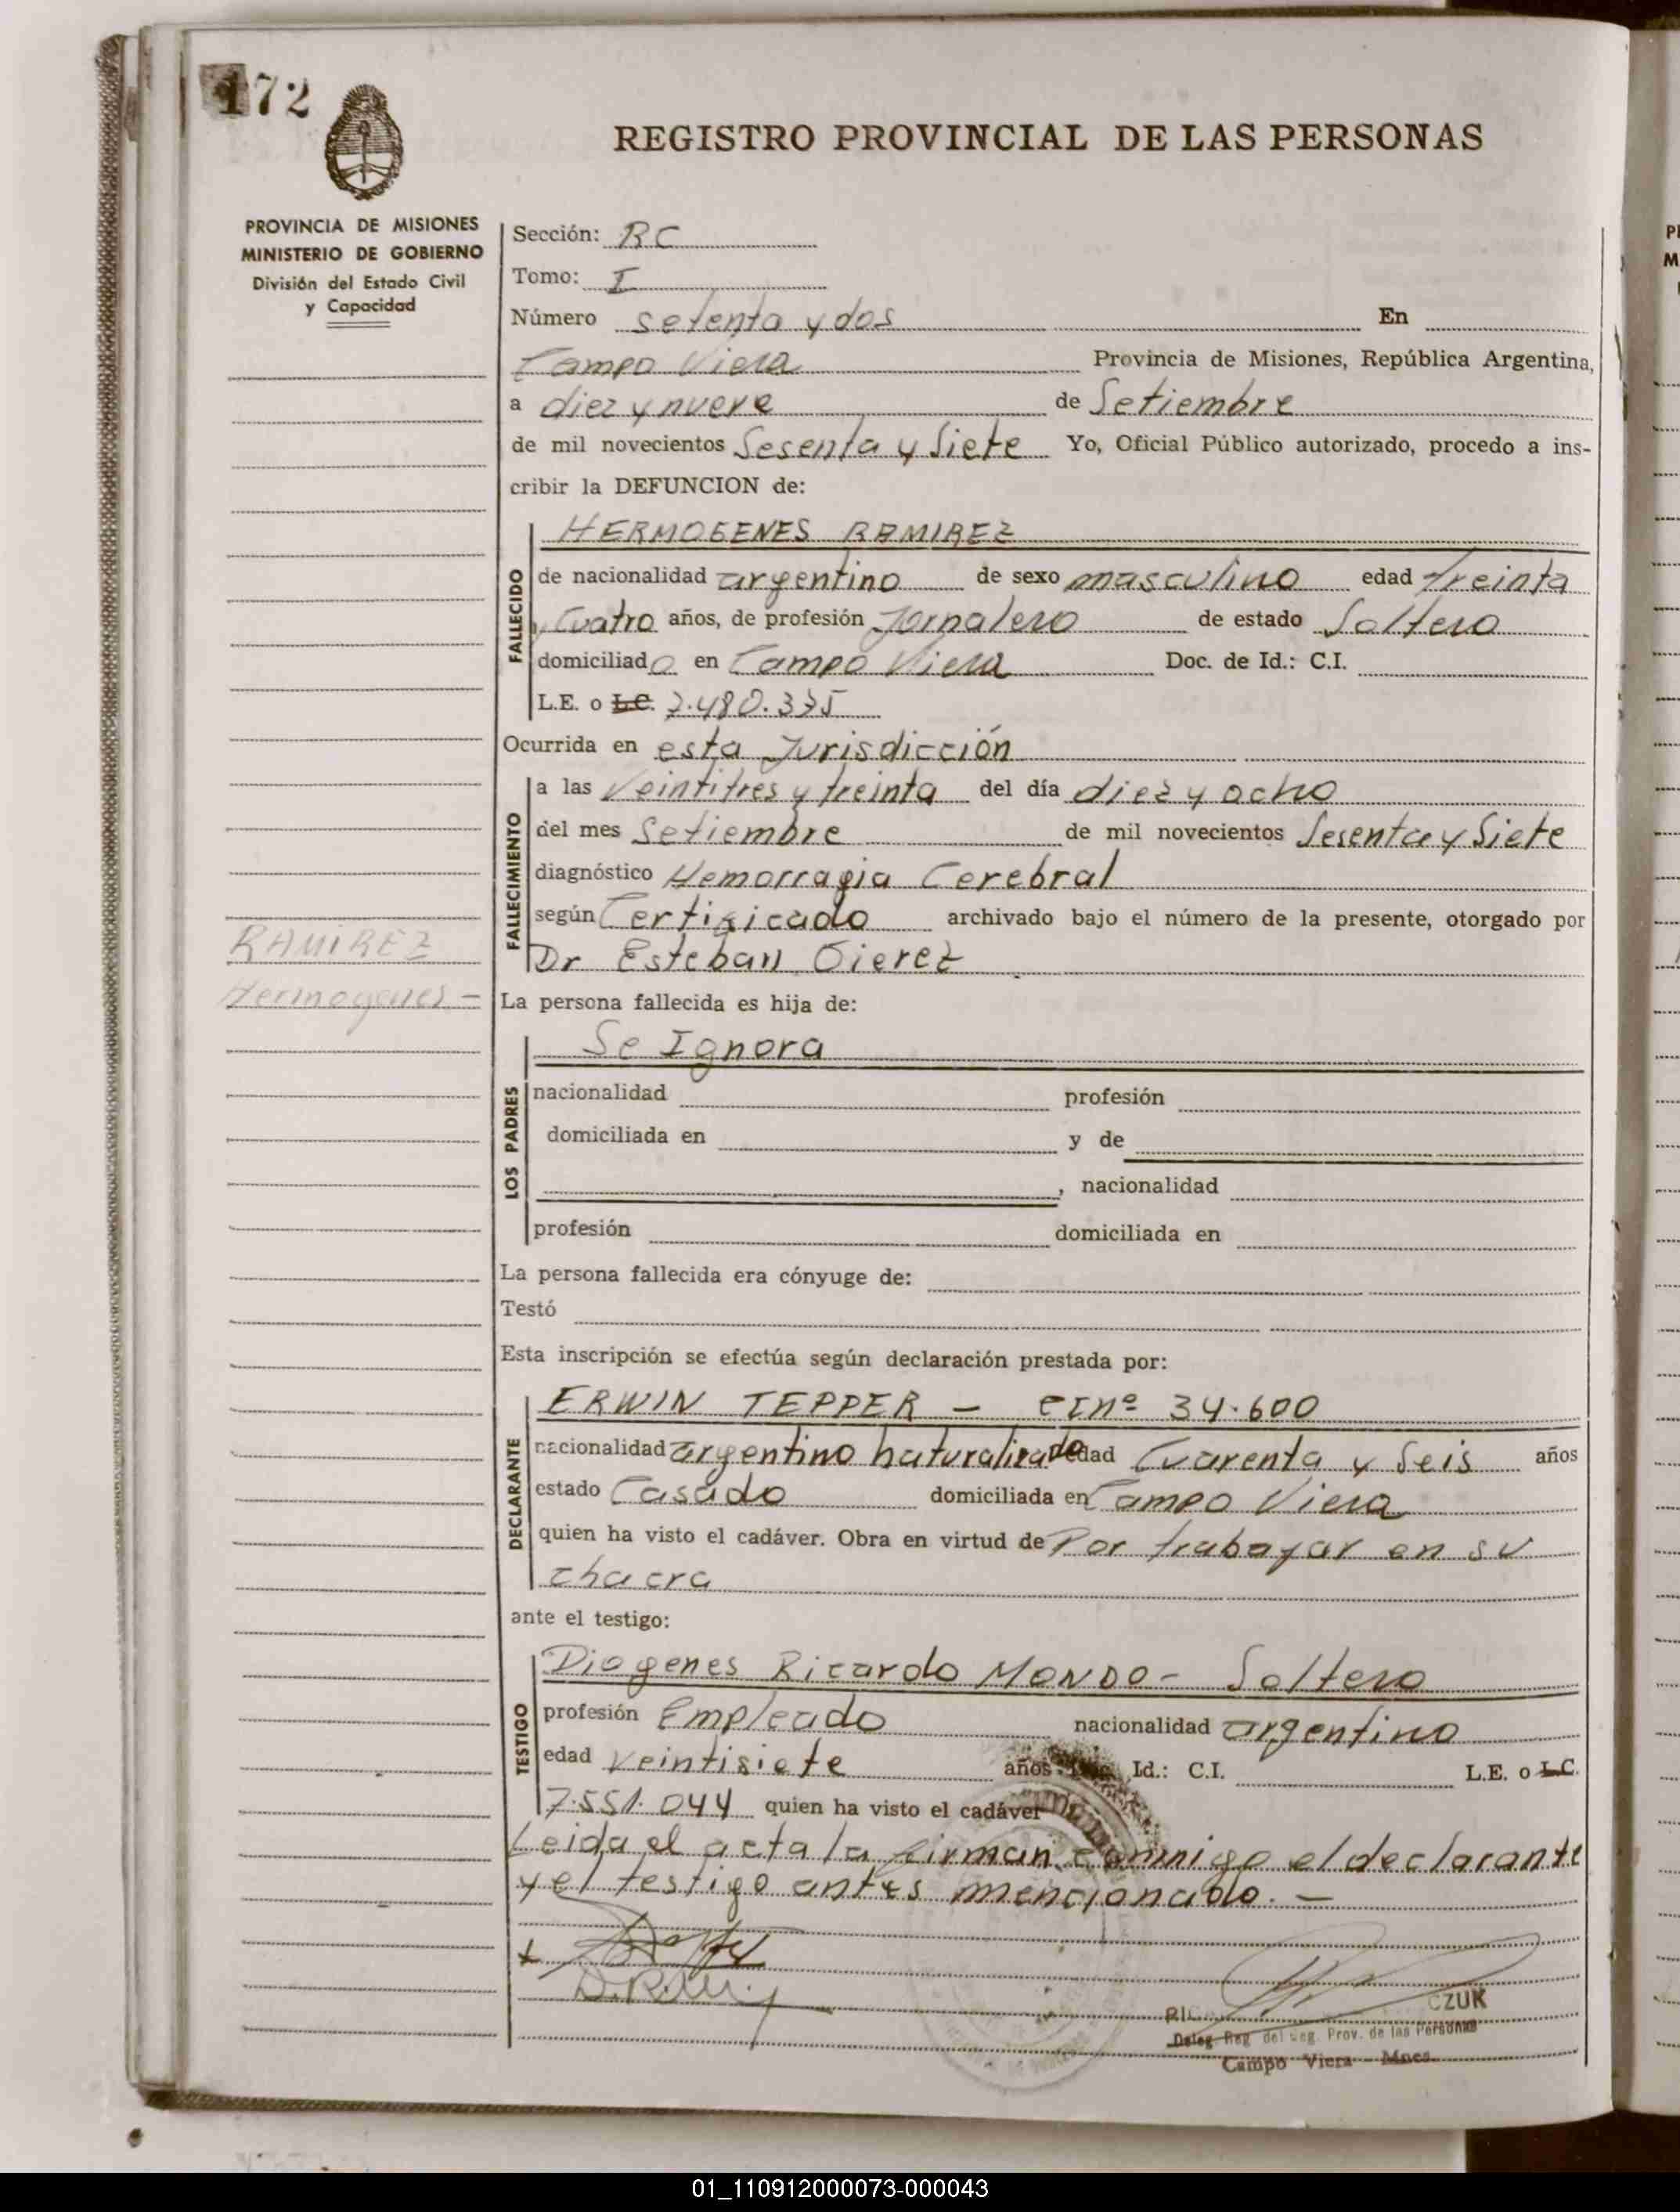 172
REGISTRO PROVINCIAL DE LAS PERSONAS
PROVINCIA DE MISIONES
MINISTERIO DE GOBIERNO
División del Estado Civil
y Capacidad
Sección: RC
Tomo: I
Número setenta y dos En
Campo Viera Provincia de Misiones, República Argentina,
a diez y nueve de Setiembre
de mil novecientos Sesenta y Siete Yo, Oficial Público autorizado, procedo a ins-
cribir la DEFUNCION de:
FALLECIDO
HERMOGENES RAMIREZ
de nacionalidad argentino de sexo masculino edad treinta
y Cuatro años, de profesión Jornalero de estado Soltero
domiciliado en Campo Viera Doc. de Id.: C.I.
L.E. o L.C. 7.480.335
Ocurrida en esta Jurisdicción
FALLECIMIENTO
a las Veintitres y treinta del día diez y ocho
del mes Setiembre de mil novecientos Sesenta y Siete
diagnóstico Hemorragia Cerebral
según Certificado archivado bajo el número de la presente, otorgado por
Dr Esteban
RAMIREZ
Hermogenes -
La persona fallecida es hija de:
LOS PADRES
Se Ignora
nacionalidad profesión
domiciliada en y de
, nacionalidad
profesión domiciliada en
La persona fallecida era cónyuge de:
Testó
Esta inscripción se efectúa según declaración prestada por:
DECLARANTE
ERWIN TEPPER - CI nº 34.600
nacionalidad argentino naturalizado edad Cuarenta y Seis años
estado Casado domiciliada en Campo Viera
quien ha visto el cadáver. Obra en virtud de Por trabajar en su
chacra
ante el testigo:
TESTIGO
Diogenes Ricardo MONDO - Soltero
profesión Empleado nacionalidad argentino
edad veintisiete años Id.: C.I. L.E. o L.C.
7.551.044 quien ha visto el cadáver
Leida el acta la firman conmigo el declarante
y el testigo antes mencionado. -
RIC CZUK
Deleg. Reg. del Reg. Prov. de las Personas
Campo Viera - Mnes.
01_110912000073-000043